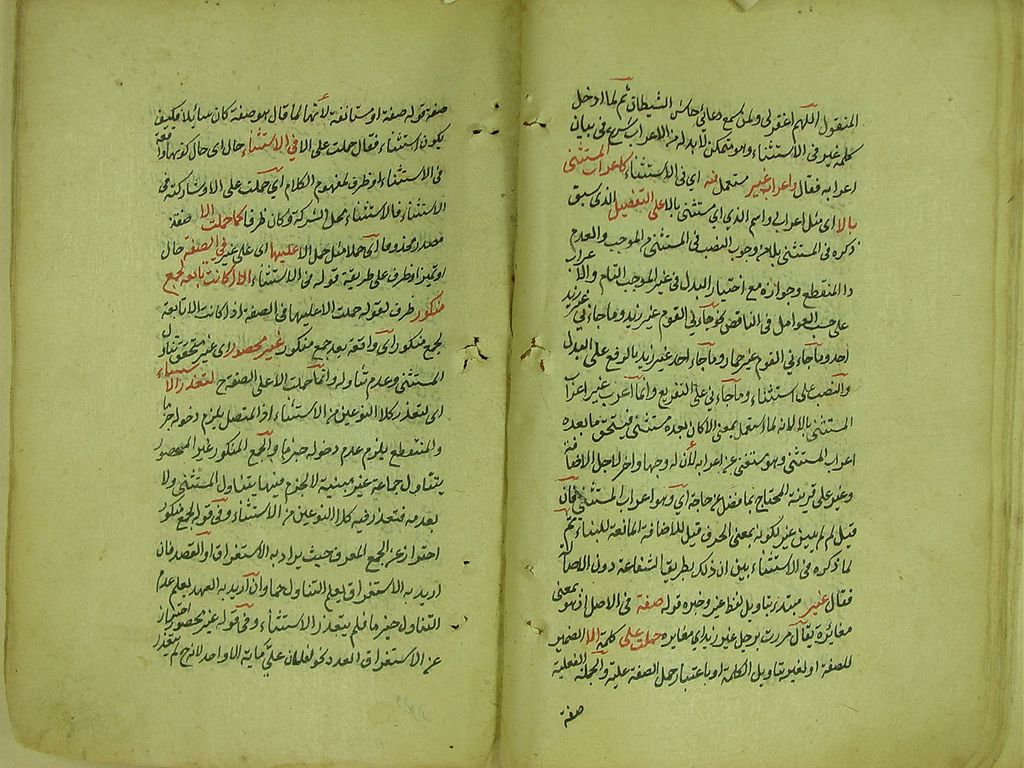 المنقول اللهم اغفر لي ولمن سمع دعائي حاشى الشيطان ثم لما ادخل
كلمة غير في الاستثناء وهو متمكن لا بد له من الاعراب شرع في بيان
اعرابه فقال واعراب غير مستعمل فيه اي في الاستثناء كاعراب المستثنى
بالا اي مثل اعرابي واسم الذي اي مستثنى بالا على التفصيل الذي سبق
ذكره في المستثنى بالا من وجوب النصب في المستثنى من الموجب والمقدم
والمنقطع وجوازه مع اختيار البدل في غير الموجب التام والاعراب
على حسب العوامل في الناقص نحو جاءني القوم غير زيد وما جاءني غير زيد
احد وما جاءني القوم غير حمار وما جاءني احد غير زيد بالرفع على البدل
والنصب على استثناء وما جاءني على التفريع وانما اعرب غير اعراب
المستثنى بالا لانه لما استعمل بمعنى الا كان بعده مستثنى فيستحق ما بعده
اعراب المستثنى وهو مستغنى عن اعرابه لأن له وجها واخر لاجل الاضافة
وغير على قرينة المحتاج بما فضل عن حاجة اي وهو اعراب المستثنى فان
قيل لم لم يبن غير لكونه بمعنى الحرف قيل للاضافة المانعة للبناء ثم
لما ذكره في الاستثناء بين ان ذلك بطريق الشفاعة دون الاصالة
فقال غير مبتدأ بتاويل لفظ غير وخبره قوله صفة في الاصل اذ هو بمعنى
مغايرة يقال مررت برجل غير زيد اي مغايره حملت على كلمة الا الضمير
للصفة او لغير بتاويل الكلمة او باعتبار حمل الصفة عليه والجملة الفعلية
صفة
صفة قوله صفة او مستانفة لأنها لما قال هو صفة كان سائلا فكيف
يكون استثناء فقال حملت على الا في الاستثناء حال اي حال كونها واقعة
في الاستثناء او ظرف لمفهوم الكلام اي حملت على الا وشاركته في
الاستثناء فالاستثناء محل الشركة وكان ظرفا كما حملت الا صفة
مصدر محذوف اي حملا مثل حمل الا عليها اي على غير في الصفة حال
او تميز او ظرف على طريقة قوله في الاستثناء الا اذا كانت تابعة لجمع
منكور ظرف لقوله حملت الا عليها في الصفة اذا كانت الا تابعة
لجمع منكور اي واقعة بعد جمع منكور غير محصور اي غير متحقق تناول
المستثنى وعدم تناوله وانما حملت الا على الصفة ح لتعذر الاستثناء
اي لتعذر كلا النوعين من الاستثناء اذ المتصل يلزم دخوله جزما
والمنقطع يلزم عدم دخوله جزما والجمع المنكور غير المحصور
يتناول جماعة غير مبينة لا لجزم منها يتناول المستثنى ولا
بعدمه فتعذر فيه كلا النوعين من الاستثناء وفي قوله الجمع منكور
احتراز عن الجمع المعرف حيث يراد به الاستغراق او القصد فان
اريد به الاستغراق يعلم التناول جما وان اريد به العهد يعلم عدم
التناول جزما فلم يتعذر الاستثناء وفي قوله غير محصور احتراز
عن الاستغراق العدد كو لفلان علي مائة الا واحد لانه ح لم يتعذر